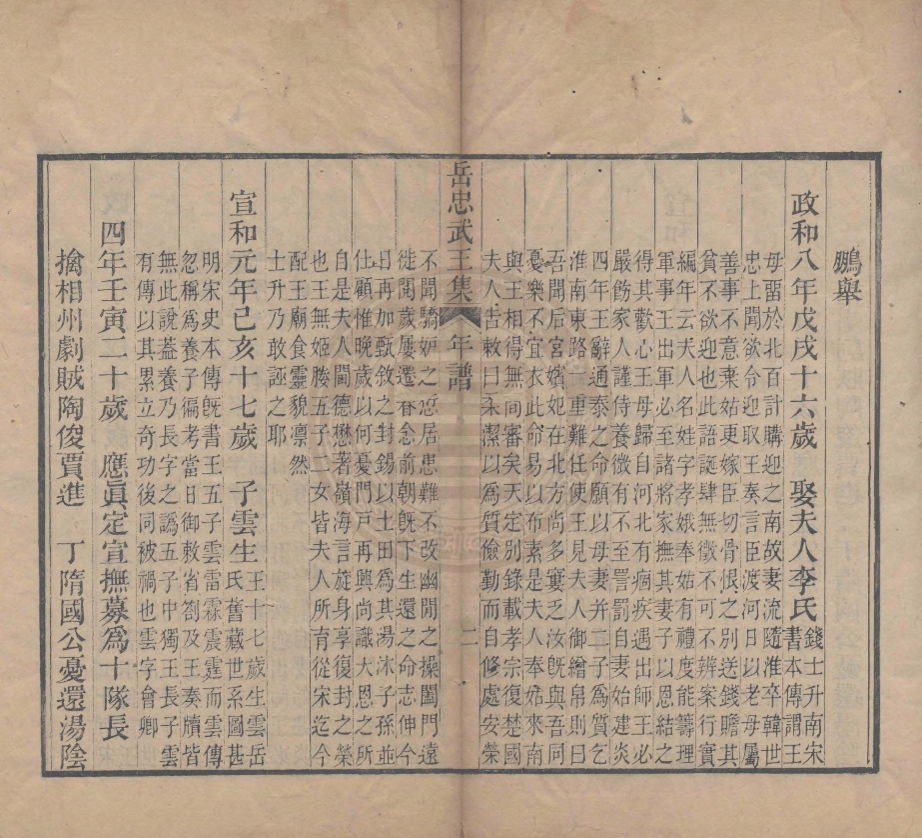 鵬舉
政和八年戊戌十六歲　娶夫人李氏錢士升南宋
書本傳謂王
母留於北百計購迎之南故妻流隨淮卒韓世
忠上聞欲令迎取王奏言臣渡河日以老母屬
善事不意棄姑更嫁臣切骨恨之別送錢贍其
貧不欲迎也此語誕肆無徵不可不辨案行實
編年云夫人名娃字孝娥奉姑有禮度能籌理
軍事王出軍必至諸將家撫其妻子以恩結之
得其歡心王母歸自河北有痼疾遇出師王必
嚴飭家人謹侍養微有不至詈罰自妻始建炎
四年王辭通泰之命願以母妻并二子為質乞
淮南東路一重難任使王夫人御繪帛則曰
吾聞后宮嬪妃在北方尚多窶乏汝旣與吾同
憂樂不宜衣此命易以布素是夫人奉姑來南
與王相得無間審矣天定別錄載孝宗復楚國
夫人告敕曰永潔以為質儉勤而自修處安榮
岳忠武王集　年譜　二
不聞驕妒之愆居患難不改幽閒之操闔門遠
徙閱歲屢遷眷念前朝旣下生還之命志伸今
日再加甄敘之封錫以土田爲其湯沐子孫並
仕顧惟晚歲以何憂門戶再興尚識大恩之所
自是夫人閫德懋著嶺海言旋身享復封之榮
也王無姬媵五子二女皆夫人所育從宋迄今
配王廟食靈貌凛然
士升乃敢誣之耶
宣和元年己亥十七歲　子雲生王十七歲生雲岳
氏舊藏世系圖甚
明宋史本傳旣書王五子雲雷霖震霆而雲傳
忽稱爲養子徧考當日御敕省劄及王奏牘皆
無此說蓋養乃長字之譌五子中獨王長子雲
有傳以其累立奇功後同被禍也雲字會卿
四年壬寅二十歲　應眞定宣撫募爲十隊長
擒相州劇賊陶俊賈進　丁隋國公憂還湯陰